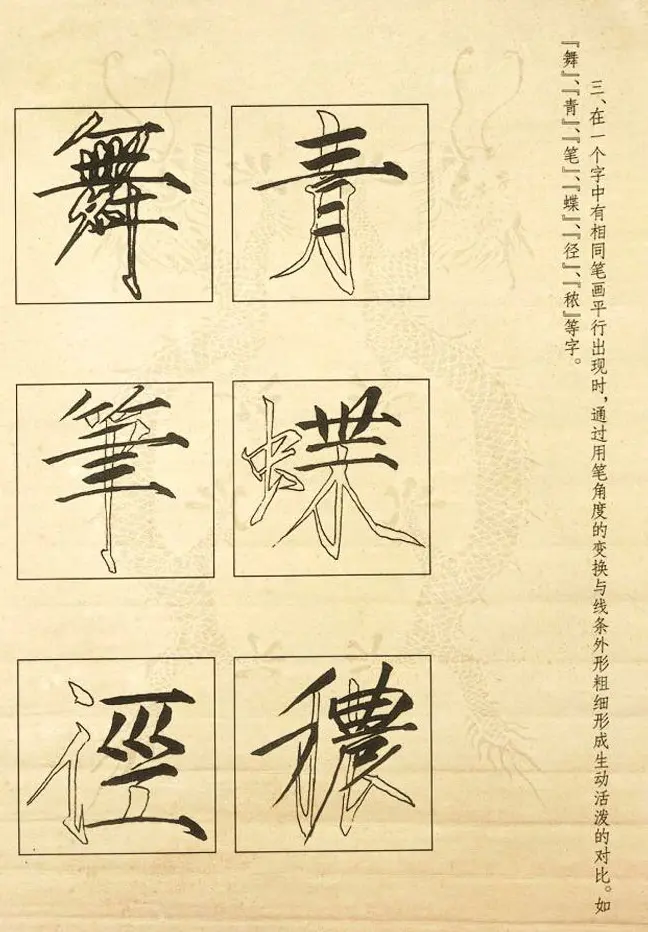 三、在一个字中有相同笔画平行出现时，通过用笔角度的变换与线条外形粗细形成生动活泼的对比。如
『舞』、『青』、『笔』、『蝶』、『径』、『秾』等字。
青
舞
蝶
筆
穠
徑